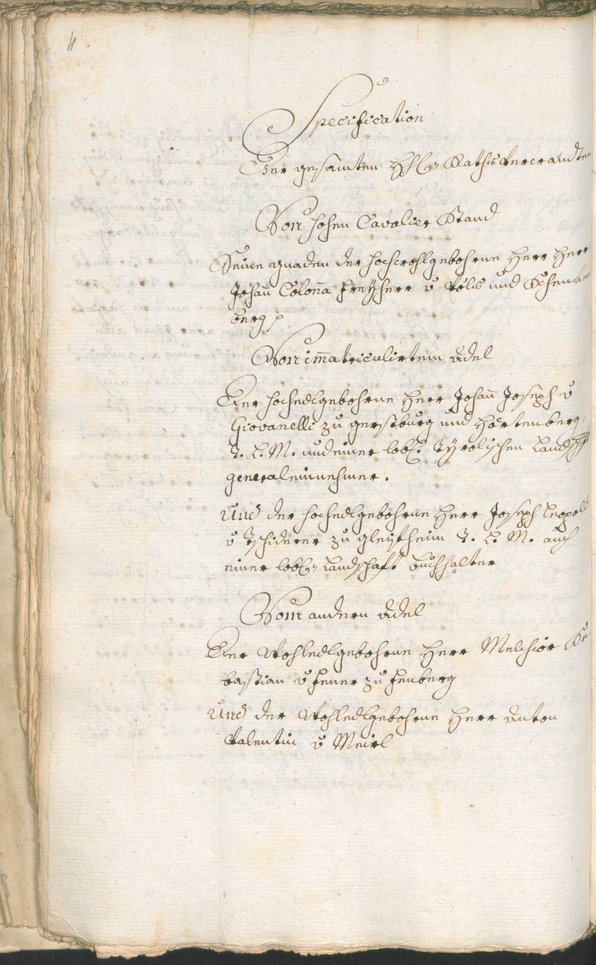 4
Specification
Der gesamten Rathsverwandten
Von hohen Cavalier Stand
Seine gnaden der hochwohlgebohrne Herr Herr
Johan̄ Colon̄a Freÿherr v Völs und Schenken
berg
Von im̄atriculirtem Adel
Der hochedlgebohrne Herr Johan̄ Joseph v
Giovanelli zu gerstburg und Hörtenberg
T. L. M. und einer lobl. Tÿrolischen Landschafft
generaleinnehmer.
Und der hochedlgebohrne Herr Joseph Leopold
v Tschiderer zu gleÿfheim T. L. M. auch
einer lobl. Landschafft buchhalter
Vom andern Adel
Der Wohledlgebohrne Herr Melchior Se
bastian v Feuer zu Fenberg
Und der Wohledlgebohrne Herr Anton
Valentin v Meirl